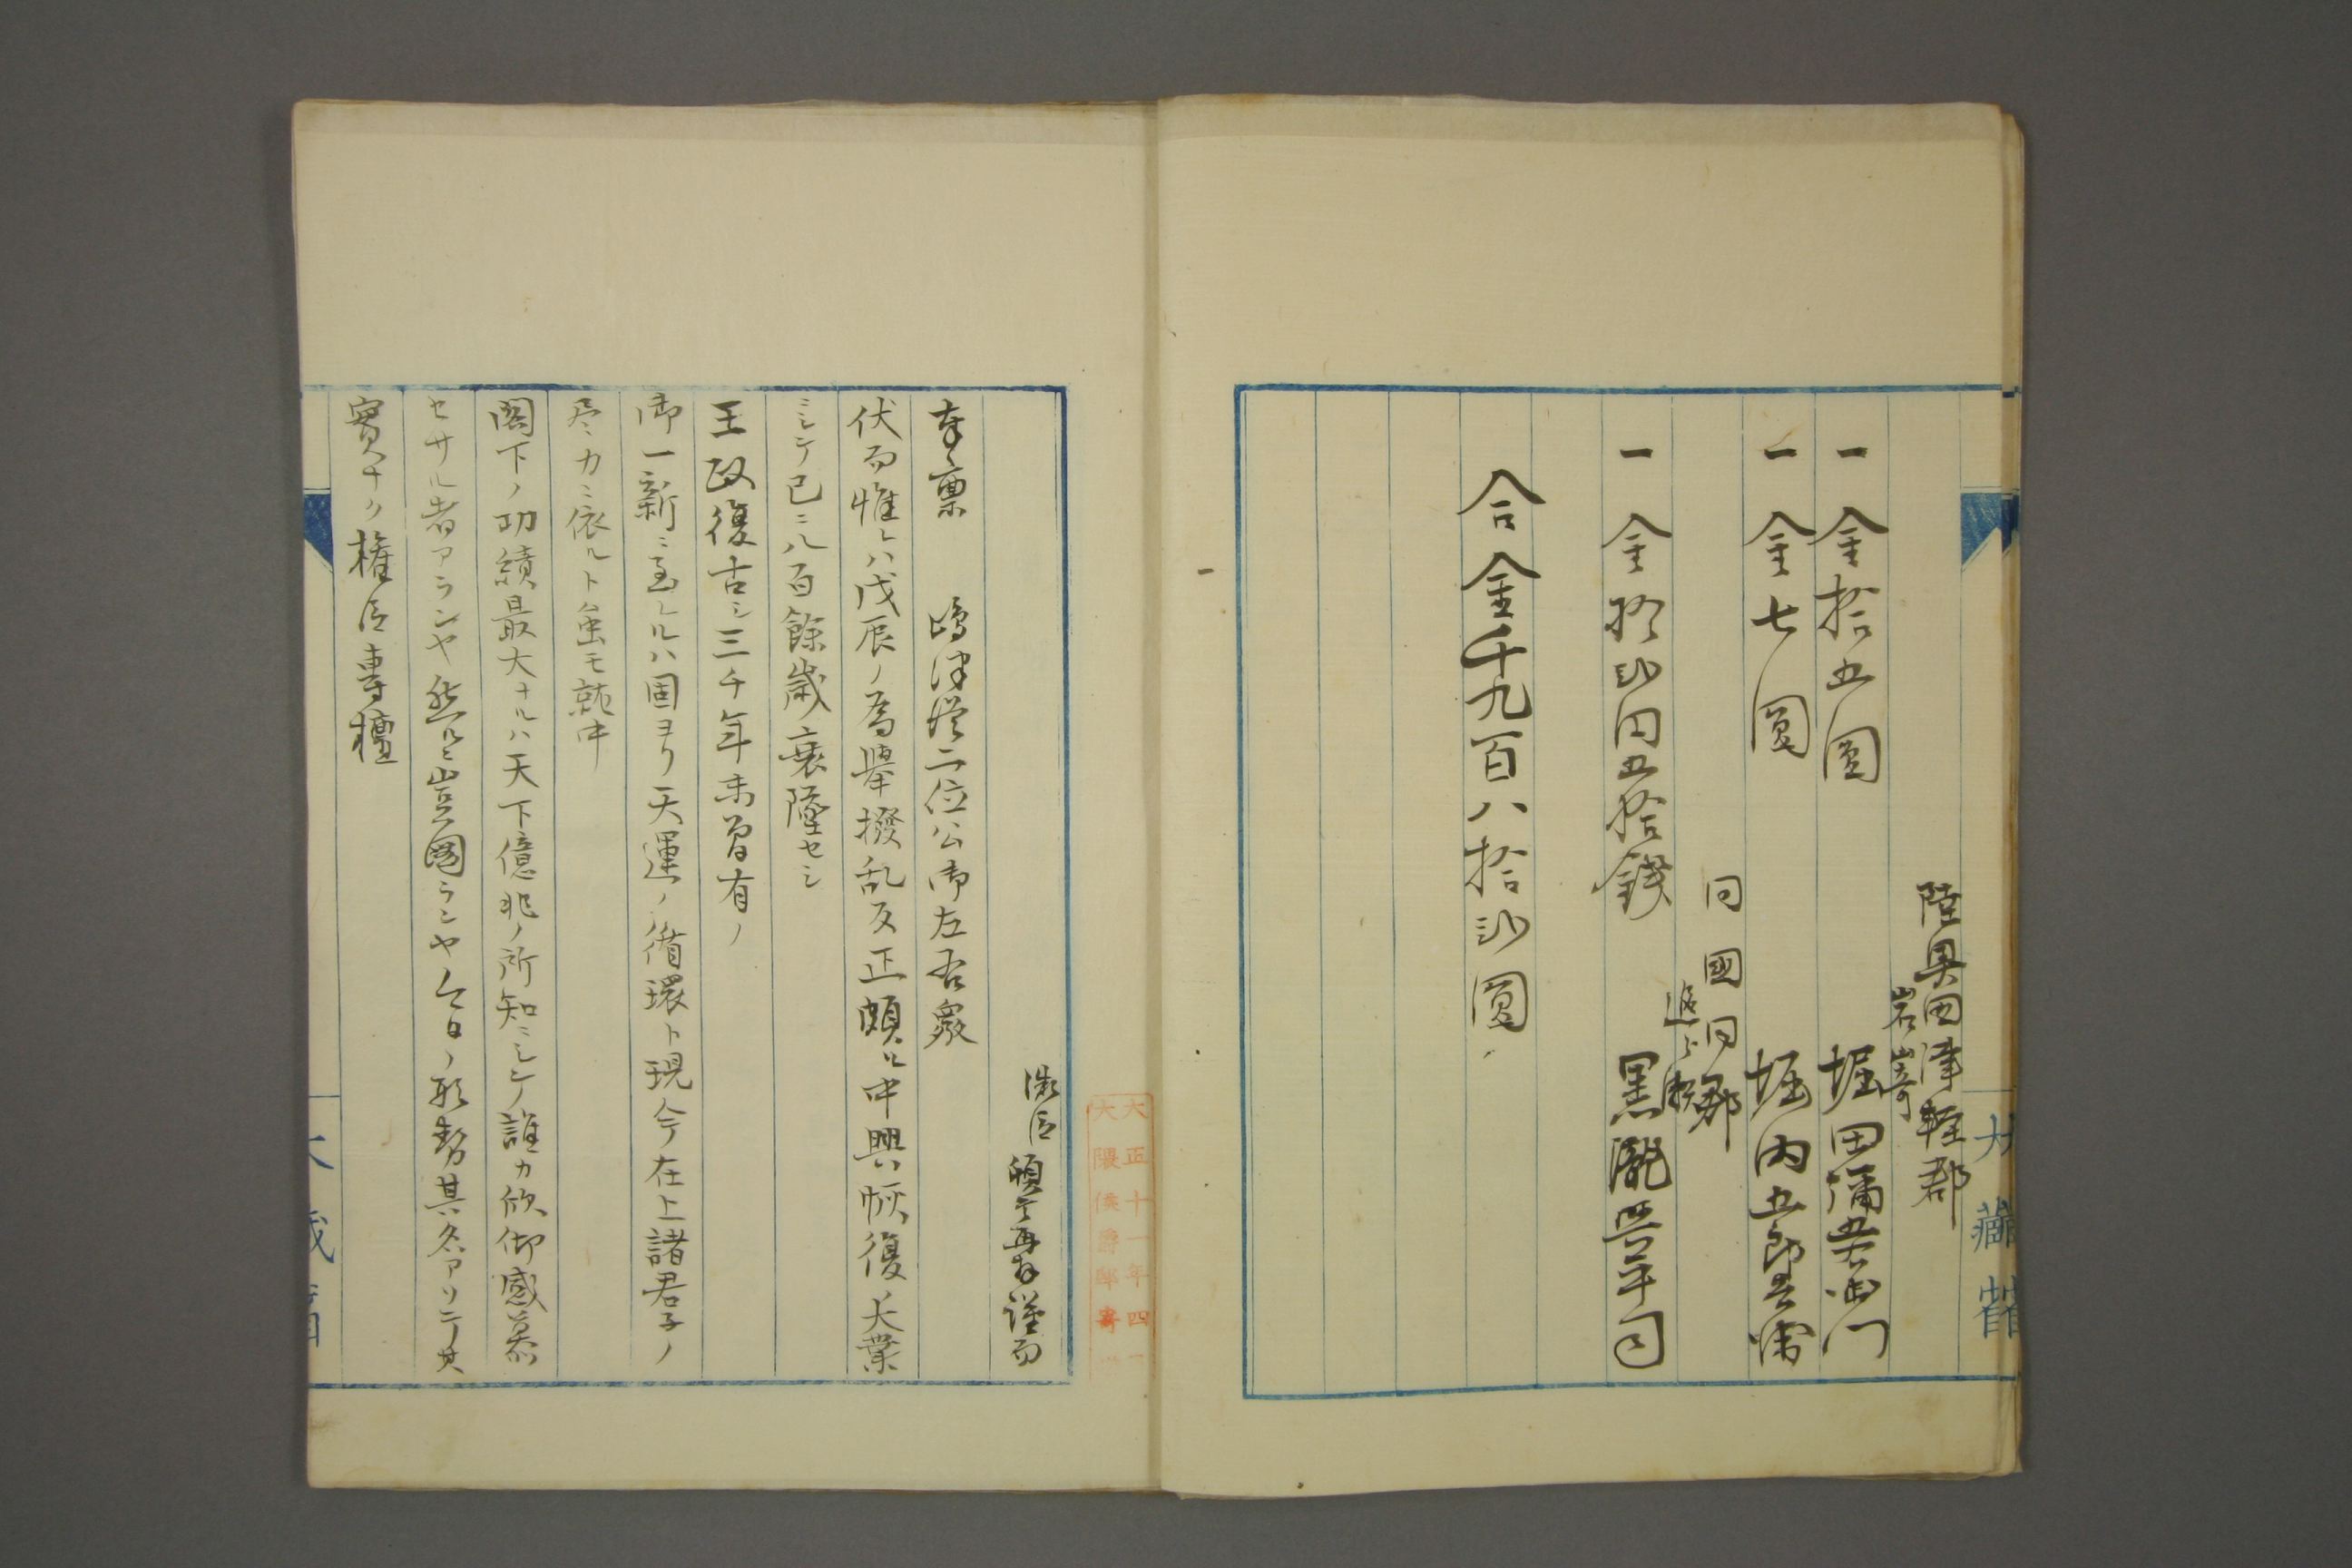 陸奥国津軽郡
岩嵜
一金拾五圓
堀田彌五右衛門
一金七圓
堀内五郎兵衛
同國同郡
一金拾弐円五拾錢
黒瀧與平司
合金千九百八拾弐圓
大藏省
大正十一年四
大隈侯爵邸寄
微臣 頓首再拝謹而
奉稟 嶋津従二位公御左右衆
伏而惟レハ戊辰ノ為舉撥乱反正頗ル中興恢復大業
ニシテ已ニ八百餘歳衰墜セシ
王政復古シ三千年未曽有ノ
御一新ニ至レルハ固ヨリ天運ノ循環ト現今在上諸君子ノ
尽力ニ依ルト虽モ就中
閣下ノ功績最大ナルハ天下億兆ノ所知ニシテ誰カ欣仰感慕
セサル者アランヤ然ルニ豈圖ランヤ今日ノ形勢其名アリテ其
實ナク権臣専擅